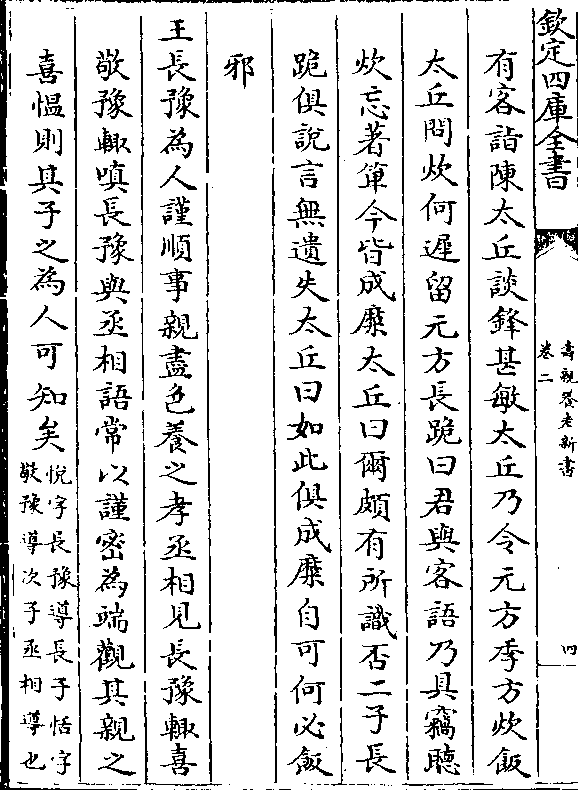 欽定四庫全書
壽親養老新書
卷二
四
有客詣陳太丘談鋒甚敏太丘乃令元方季方炊飯
太丘問炊何遲留元方長跪曰君與客語乃具竊聽
炊忘著箄今皆成糜太丘曰爾頗有所識否二子長
跪俱說言無遺失太丘曰如此俱成糜自可何必飯
邪
王長豫為人謹順事親盡色養之孝丞相見長豫輙喜
敬豫輙嗔長豫與丞相語常以謹密為端觀其親之
喜愠則其子之為人可知矣
悅字長豫導長子恬字
敬豫導次子丞相導也